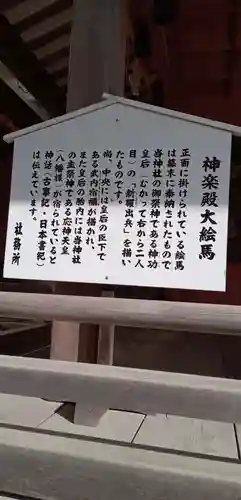 神楽殿大絵馬
正面に掛けられている絵馬
は幕末に奉納されたもので
当神社の御祭神である神功
皇后(むかって右から二人
目)の「新羅出兵」を描い
たものです。
尚、中央には皇后の臣下で
ある武内宿禰が描かれ、
また皇后の胎内には当神社
の主祭神である応神天皇
(八幡様)が宿られていると
神話(古事記・日本書紀)
は伝えています。
社務所